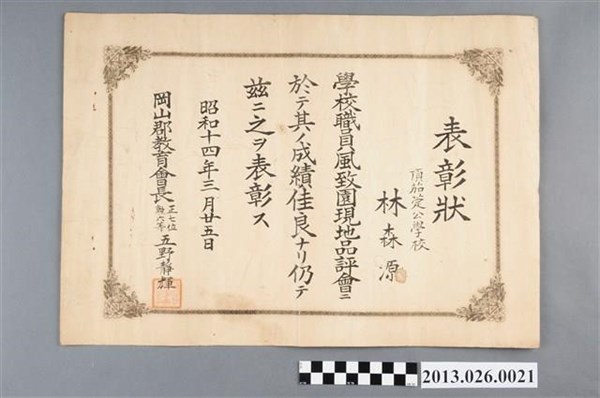 表彰狀
頂茄萣公學校
林森源
學校職員風致園現地品評會ニ
於テ其ノ成績佳良ナリ仍テ
茲ニ之ヲ表彰ス
昭和十四年三月廿五日
岡山郡教育會長 正七位 勲六等 五野靜輝
2013.026.0021